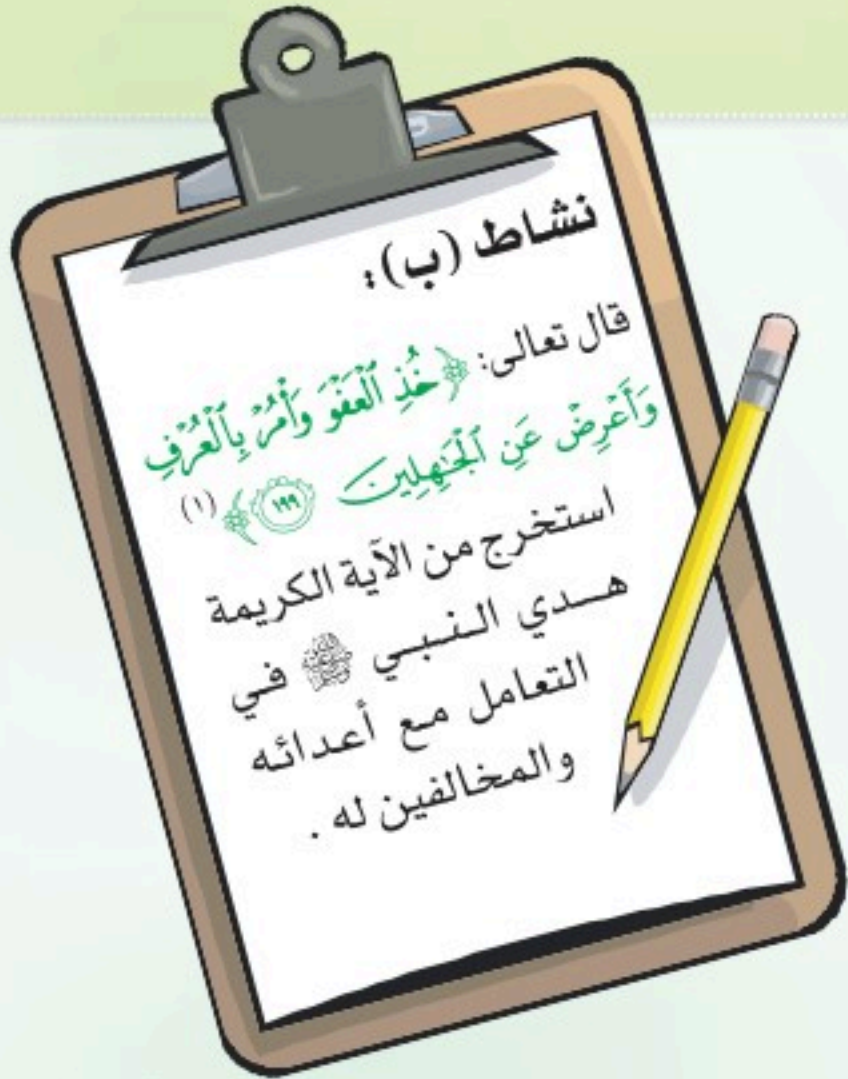 نشاط (ب):
قال تعالى: ﴿خُذِ ٱلْعَفْوَ وَأْمُرْ بِٱلْعُرْفِ
وَأَعْرِضْ عَنِ ٱلْجَٰهِلِينَ ١٩٩﴾ (١)
استخرج من الآية الكريمة
هدي النبي ﷺ في
التعامل مع أعدائه
والمخالفين له .